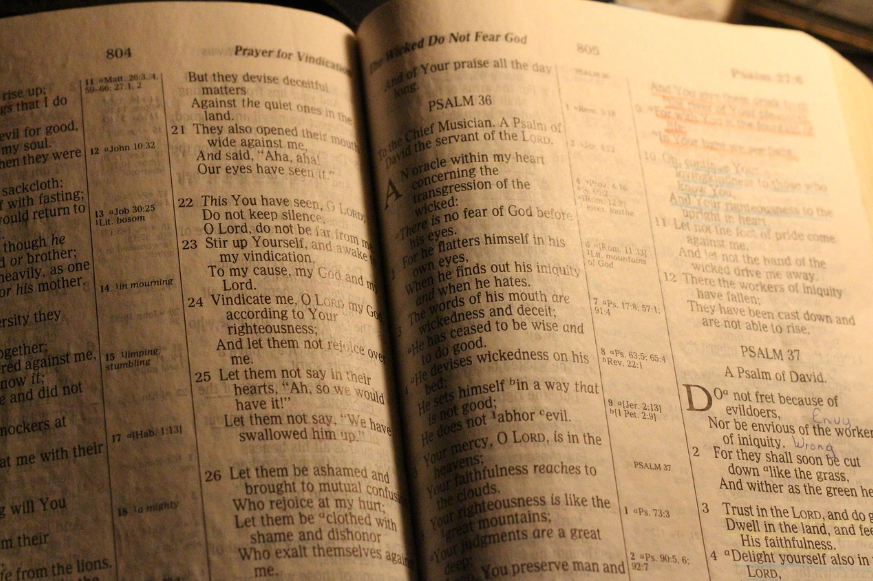 804
Prayer for Vindication
rise up;
gs that I do
evil for good,
my soul.
hen they were
sackcloth:
f with fasting;
ould return to
though he
d or brother;
heavily, as one
or his mother.
ersity they
ogether;
ered against me,
now it;
e and did not
mockers at
at me with their
g will You
m their
fe from the lions.
11 aMatt. 26:3, 4,
59–66; 27:1, 2
12 aJohn 10:32
13 aJob 30:25
1Lit. bosom
14 1in mourning
15 1limping,
stumbling
17 a[Hab. 1:13]
18 1a mighty
But they devise deceitful
matters
Against the quiet ones in the
land.
21 They also opened their mouth
wide against me,
And said, "Aha, aha!
Our eyes have seen it."
22 This You have seen, O LORD;
Do not keep silence.
O Lord, do not be far from me.
23 Stir up Yourself, and awake
my vindication,
To my cause, my God and my
Lord.
24 Vindicate me, O LORD my God
according to Your
righteousness;
And let them not rejoice over
me.
25 Let them not say in their
hearts, "Ah, so we would
have it!"
Let them not say, "We have
swallowed him up."
26 Let them be ashamed and
brought to mutual confusion
Who rejoice at my hurt;
Let them be aclothed with
shame and dishonor
Who exalt themselves against
me.
The Wicked Do Not Fear God
805
Psalm 37:4
And of Your praise all the day
long.
PSALM 36
To the Chief Musician. A Psalm of
David the servant of the LORD.
AN oracle within my heart
concerning the
transgression of the
wicked:
aThere is no fear of God before
his eyes.
For he flatters himself in his
own eyes,
When he finds out his iniquity
and when he hates.
The words of his mouth are
wickedness and deceit;
aHe has ceased to be wise and
to do good.
aHe devises wickedness on his
bed;
He sets himself bin a way that
is not good;
He does not 1abhor cevil.
Your mercy, O LORD, is in the
heavens;
Your faithfulness reaches to
the clouds.
Your righteousness is like the
1great mountains;
aYour judgments are a great
deep;
You preserve man and
6 a[Rom. 11:33]
1Lit. mountains
of God
7 aPs. 17:8; 57:1;
91:4
8 aPs. 63:5; 65:4
bRev. 22:1
9 a[Jer. 2:13]
b[1 Pet. 2:9]
PSALM 37
1 aPs. 73:3
2 aPs. 90:5, 6;
92:7
upright in heart.
11 Let not the foot of pride come
against me,
And let not the hand of the
wicked drive me away.
12 There the workers of iniquity
have fallen;
They have been cast down and
are not able to rise.
PSALM 37
A Psalm of David.
DOa not fret because of
evildoers,
Envy
Nor be envious of the workers
of iniquity. Wrong
2 For they shall soon be cut
down alike the grass,
And wither as the green he
3 Trust in the LORD, and do g
Dwell in the land, and fee
His faithfulness.
4 aDelight yourself also in
LORD,